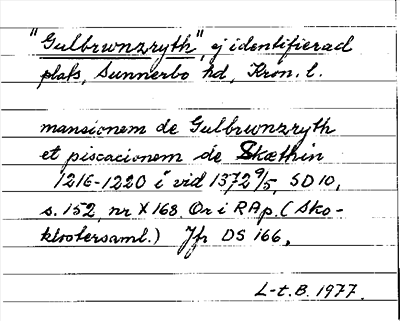 "Gulbrwnzryth", ej identifierad
plats, Sunnerbo hd, Kron. l.
mansionem de Gulbrwnzryth
et piscacionem de Skæthin
1216-1220 i vid 1372 9/5, SD 10,
s. 152, nr X 168. Or i RAp. (Sko-
klostersaml.) Jfr DS 166.
L-t. B. 1977.